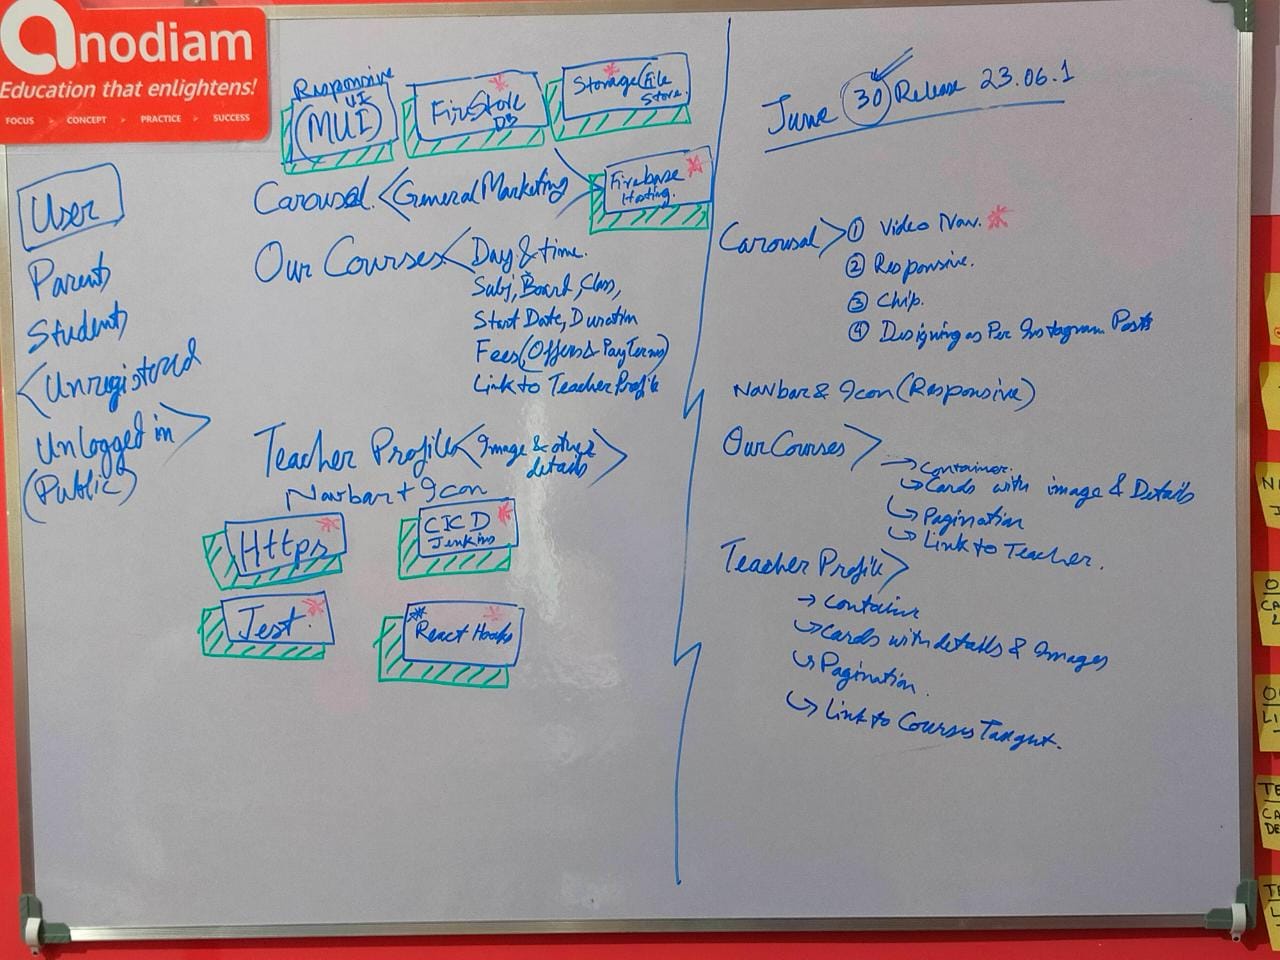 anodiam
Education that enlightens!
FOCUS > CONCEPT > PRACTICE > SUCCESS
User
Parents
Students
<Unregistered
Unlogged in>
(Public)
Responsive
UI
(MUI)
FireStore
DB
Storage(File
Store.
Firebase
Hosting.
Carousal. <General Marketing
Our Courses< Day & time.
Subj, Board, Class,
Start Date, Duration
Fees (Offers & Pay Terms)
Link to Teacher Profile
Teacher Profile <Image & other
details>
Navbar + Icon
Https
CICD
Jenkins
Test.
** React Hooks
June 30 Release 23.06.1
Carousal> ① Video Nav.
② Responsive.
③ Chip.
④ Designing as Per Instagram Posts
Navbar & Icon (Responsive)
Our Courses>
→ Container.
↳ Cards with image & Details
↳ Pagination
↳ Link to Teacher.
Teacher Profile>
→ Container
↳ Cards with details & Images
↳ Pagination.
↳ Link to Courses Taught.
N
O
CA
O
LI
TE
CA
DE